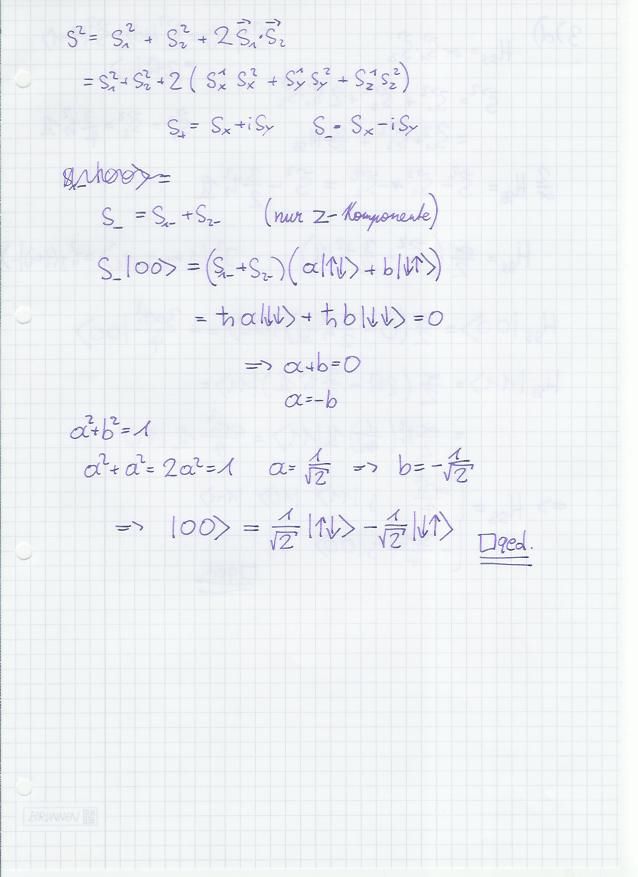 S² = S₁² + S₂² + 2 S⃗₁·S⃗₂
= S₁² + S₂² + 2 ( Sₓ¹ Sₓ² + S_y¹ S_y² + S_z¹ S_z² )
S₊ = Sₓ + iS_y S₋ = Sₓ − iS_y
S₋ = S₁₋ + S₂₋ (nur z-Komponente)
S₋|00⟩ = (S₁₋ + S₂₋)( a|↑↓⟩ + b|↓↑⟩ )
= ħ a|↓↓⟩ + ħ b|↓↓⟩ = 0
=> a+b=0
a=-b
a²+b²=1
a²+a²=2a²=1 a=1/√2 => b=-1/√2
=> |00⟩ = 1/√2 |↑↓⟩ − 1/√2 |↓↑⟩ □qed.
BRUNNEN